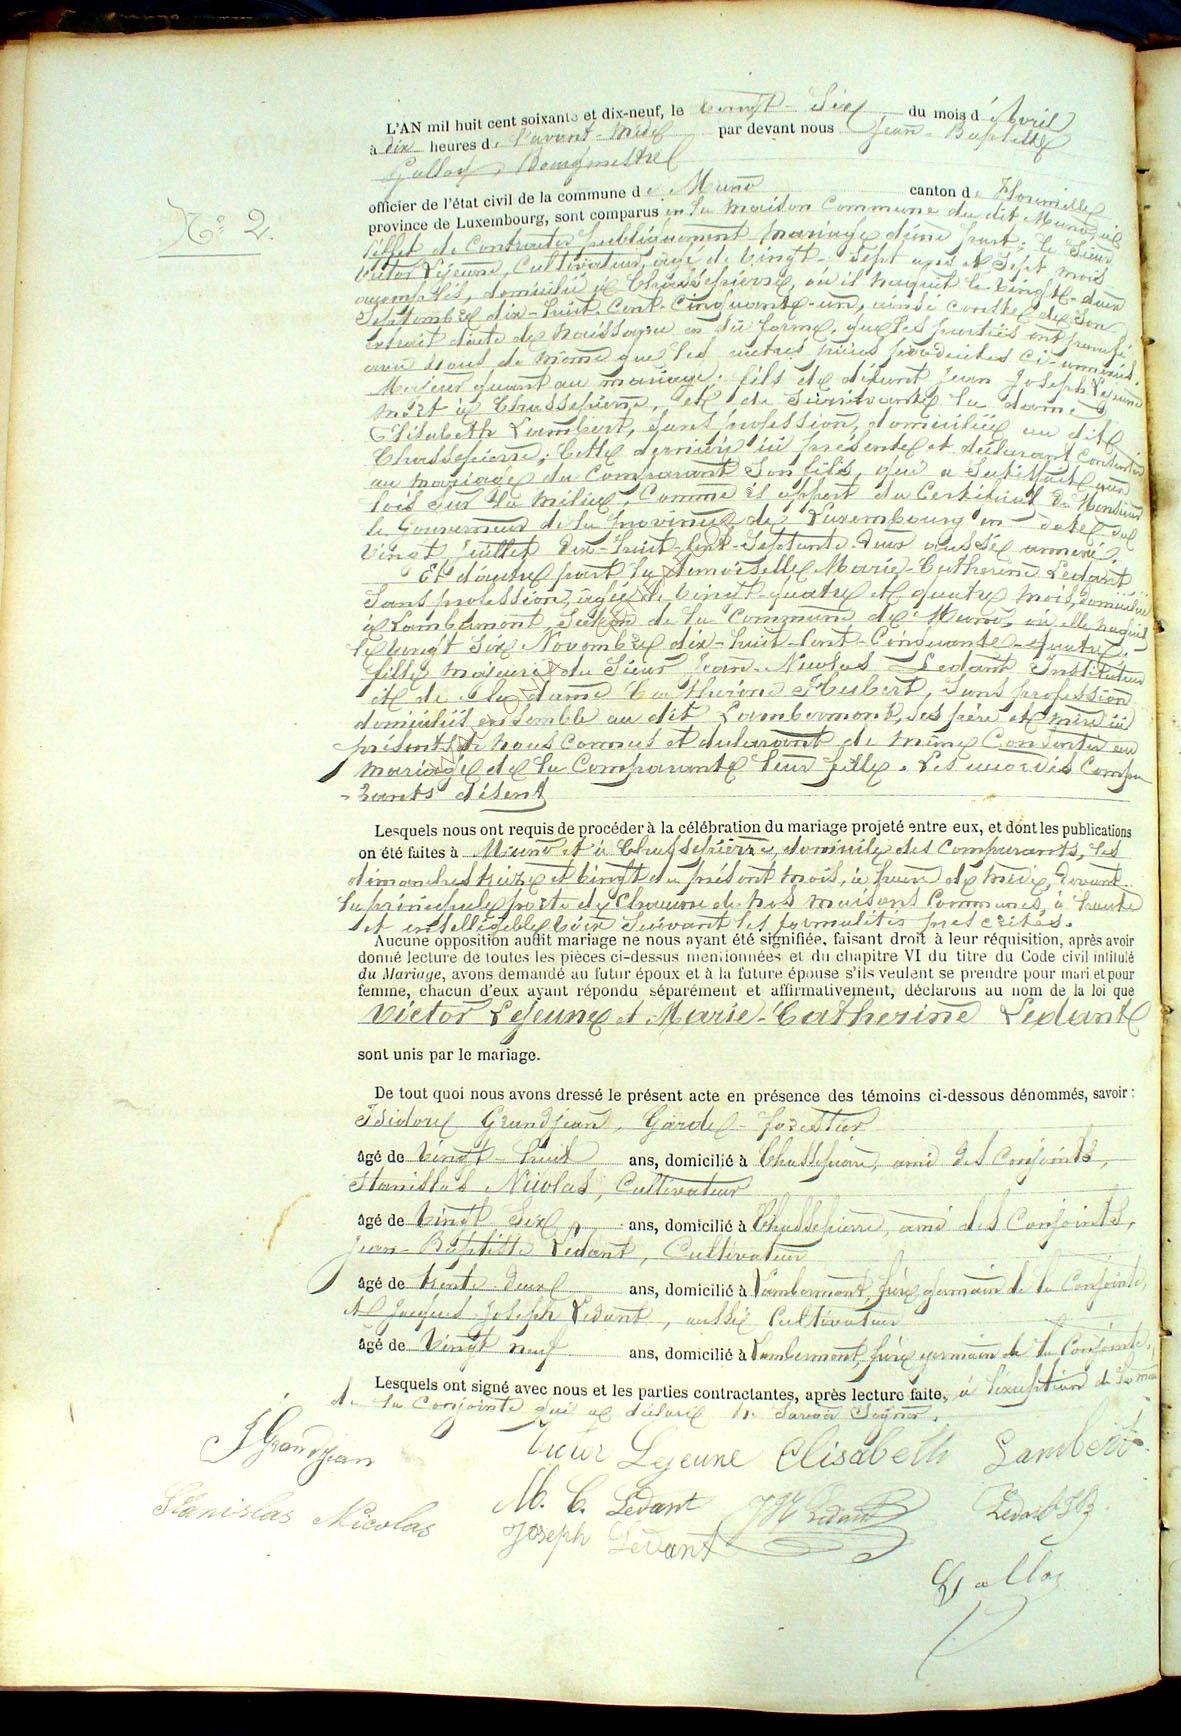 L'AN mil huit cent soixante et dix-neuf, le vingt-Six du mois d'Avril
à dix heures de l'avant-Midi par devant nous Jean-Baptiste
Gallas, Bourgmestre
officier de l'état civil de la commune de Muno canton de Florenville
province de Luxembourg, sont comparus en la maison Commune du dit Muno, à
l'effet de Contracter publiquement mariage d'une part: le Sieur
N° 2.
Victor Lejeune, Cultivateur, âgé de vingt-Sept ans et Sept mois
accomplis, domicilié à Chassepierre, où il naquit le vingt-deux
Septembre dix-huit-Cent-Cinquante-un, ainsi conste de Son
extrait d'acte de naissance en due forme, que les parties ont
nous de même que les autres pièces produites ci-annexées.
Majeur quant au mariage. fils de défunt Jean Joseph Lejeune
mort à Chassepierre, et de Survivante la dame
Elisabeth Lambert, sans profession, domiciliée au dit
Chassepierre; Cette dernière ici présente et déclarant Consentir
au mariage du Comparant Son fils, qui a Satisfait aux
lois sur la milice, Comme il appert du Certificat de Monsieur
le Gouverneur de la province de Luxembourg en date du
vingt juillet dix-huit-Cent-Septante-deux aussi annexé.
Et d'autre part la demoiselle Marie-Catherine Ledant
Sans profession, âgée de vingt-quatre et quatre mois, domiciliée
à Lambermont, Section de la Commune de Muno, où elle naquit
le vingt Six Novembre dix-huit-Cent-Cinquante-quatre,
fille majeure du Sieur Jean-Nicolas Ledant Instituteur
et de la dame Catherine Hubert, Sans profession
domiciliés ensemble au dit Lambermont, ses père et mère ici
présents de nous Connus et déclarant de même Consentir au
mariage de la Comparante leur fille. Les Compa
-rants disent
Lesquels nous ont requis de procéder à la célébration du mariage projeté entre eux, et dont les publications
on été faites à Muno et à Chassepierre, domicile des Comparants, les
dimanches treize et vingt du présent mois, à heure de midi, devant
la principale porte de Chacune de nos maisons Communes, à haute
et intelligible voix Suivant les formalités prescrites.
Aucune opposition audit mariage ne nous ayant été signifiée, faisant droit à leur réquisition, après avoir
donné lecture de toutes les pièces ci-dessus mentionnées et du chapitre VI du titre du Code civil intitulé
du Mariage, avons demandé au futur époux et à la future épouse s'ils veulent se prendre pour mari et pour
femme, chacun d'eux ayant répondu séparément et affirmativement, déclarons au nom de la loi que
Victor Lejeune et Marie-Catherine Ledant
sont unis par le mariage.
De tout quoi nous avons dressé le présent acte en présence des témoins ci-dessous dénommés, savoir:
Isidore Grandjean, Garde-forestier
âgé de vingt-huit ans, domicilié à Chassepierre, ami des Conjoints,
Stanislas Nicolas, Cultivateur
âgé de vingt Six ans, domicilié à Chassepierre, ami des Conjoints,
Jean-Baptiste Ledant, Cultivateur
âgé de trente-deux ans, domicilié à Lambermont, frère germain de la Conjointe,
et Jacques-Joseph Ledant, aussi Cultivateur
âgé de vingt neuf ans, domicilié à Lambermont, frère germain de la Conjointe,
Lesquels ont signé avec nous et les parties contractantes, après lecture faite, à l'exception de la mère
de la Conjointe qui a déclaré ne Savoir Signer.
Victor Lejeune Elisabeth Lambert
J Grandjean
M. C. Ledant J N Ledant Ledant J B
Stanislas Nicolas
Joseph Ledant
Gallas